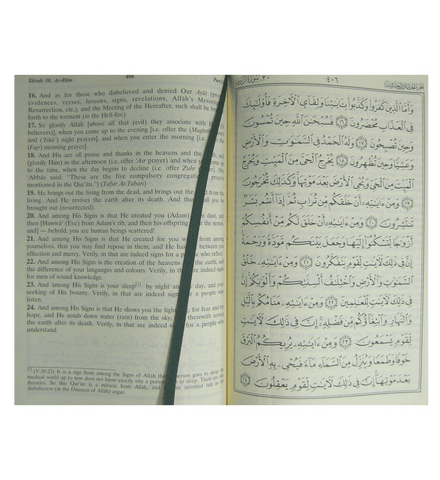 Sûrah 30. Ar-Rûm
406
16. And as for those who disbelieved and denied Our Ayât
evidences, verses, lessons, signs, revelations, Allâh's Messengers
Resurrection, etc.), and the Meeting of the Hereafter, such shall be
forth to the torment (in the Hell-fire)
17. So glorify Allâh [above all that (evil) they associate with
believers)], when you come up to the evening [i.e. offer the (Maghrib)
and ('Ishâ') night prayers], and when you enter the morning [i.e.
(Fajr) morning prayer].
18. And His are all praise and thanks in the heavens and the earth,
(glorify Him) in the afternoon (i.e. offer 'Asr prayer) and when
to the time, when the day begins to decline (i.e. offer Zuhr prayer).
Abbâs said: "These are the five compulsory congregational
mentioned in the Qur'ân.") (Tafsir At-Tabari)
19. He brings out the living from the dead, and brings out the dead from the
living. And He revives the earth after its death. And thus shall you be
brought out (resurrected).
20. And among His Signs is that He created you (Adam)
then [Hawwa' (Eve) from Adam's rib, and then his offspring from the
and] — behold, you are human beings scattered!
21. And among His Signs is that He created for you wives from among
yourselves, that you may find repose in them, and He has put between you
affection and mercy. Verily, in that are indeed signs for a people who reflect.
22. And among His Signs is the creation of the heavens and the earth, and
the difference of your languages and colours. Verily, in that are indeed signs
for men of sound knowledge.
23. And among His Signs is your sleep by night and by day, and your
seeking of His Bounty. Verily, in that are indeed signs for a people who
listen.
24. And among His Signs is that He shows you the lightning, for fear and for
hope, and He sends down water (rain) from the sky, and therewith revives
the earth after its death. Verily, in that are indeed signs for a people who
understand.
٤٠٦
وَأَمَّا ٱلَّذِينَ كَفَرُوا۟ وَكَذَّبُوا۟ بِـَٔايَٰتِنَا وَلِقَآئِ ٱلْـَٔاخِرَةِ فَأُو۟لَٰٓئِكَ
فِى ٱلْعَذَابِ مُحْضَرُونَ ١٦ فَسُبْحَٰنَ ٱللَّهِ حِينَ تُمْسُونَ
وَحِينَ تُصْبِحُونَ ١٧ وَلَهُ ٱلْحَمْدُ فِى ٱلسَّمَٰوَٰتِ وَٱلْأَرْضِ
وَعَشِيًّا وَحِينَ تُظْهِرُونَ ١٨ يُخْرِجُ ٱلْحَىَّ مِنَ ٱلْمَيِّتِ وَيُخْرِجُ
ٱلْمَيِّتَ مِنَ ٱلْحَىِّ وَيُحْىِ ٱلْأَرْضَ بَعْدَ مَوْتِهَا وَكَذَٰلِكَ تُخْرَجُونَ
١٩ وَمِنْ ءَايَٰتِهِۦٓ أَنْ خَلَقَكُم مِّن تُرَابٍ ثُمَّ إِذَآ أَنتُم بَشَرٌ
تَنتَشِرُونَ ٢٠ وَمِنْ ءَايَٰتِهِۦٓ أَنْ خَلَقَ لَكُم مِّنْ أَنفُسِكُمْ
أَزْوَٰجًا لِّتَسْكُنُوٓا۟ إِلَيْهَا وَجَعَلَ بَيْنَكُم مَّوَدَّةً وَرَحْمَةً
إِنَّ فِى ذَٰلِكَ لَـَٔايَٰتٍ لِّقَوْمٍ يَتَفَكَّرُونَ ٢١ وَمِنْ ءَايَٰتِهِۦ خَلْقُ
ٱلسَّمَٰوَٰتِ وَٱلْأَرْضِ وَٱخْتِلَٰفُ أَلْسِنَتِكُمْ وَأَلْوَٰنِكُمْ إِنَّ
فِى ذَٰلِكَ لَـَٔايَٰتٍ لِّلْعَٰلِمِينَ ٢٢ وَمِنْ ءَايَٰتِهِۦ مَنَامُكُم بِٱلَّيْلِ
وَٱلنَّهَارِ وَٱبْتِغَآؤُكُم مِّن فَضْلِهِۦٓ إِنَّ فِى ذَٰلِكَ لَـَٔايَٰتٍ
لِّقَوْمٍ يَسْمَعُونَ ٢٣ وَمِنْ ءَايَٰتِهِۦ يُرِيكُمُ ٱلْبَرْقَ
خَوْفًا وَطَمَعًا وَيُنَزِّلُ مِنَ ٱلسَّمَآءِ مَآءً فَيُحْىِۦ بِهِ ٱلْأَرْضَ
بَعْدَ مَوْتِهَآ إِنَّ فِى ذَٰلِكَ لَـَٔايَٰتٍ لِّقَوْمٍ يَعْقِلُونَ ٢٤